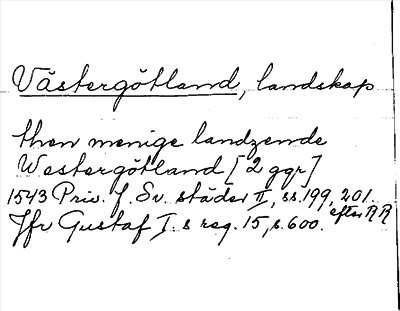 Västergötland, landskap
then menige landzende
Westergötland [2 ggr]
1543 Priv. f. Sv. städer II, ss. 199, 201.
efter RR
Jfr Gustaf I:s reg. 15, s. 600.